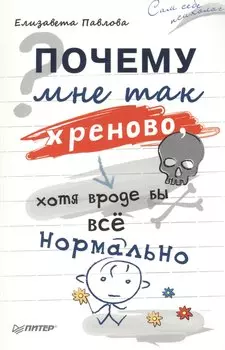 Елизавета Павлова
Сам себе
психолог
ПОЧЕМУ
мне так
хреново,
хотя вроде бы
всё
нормально
ПИТЕР